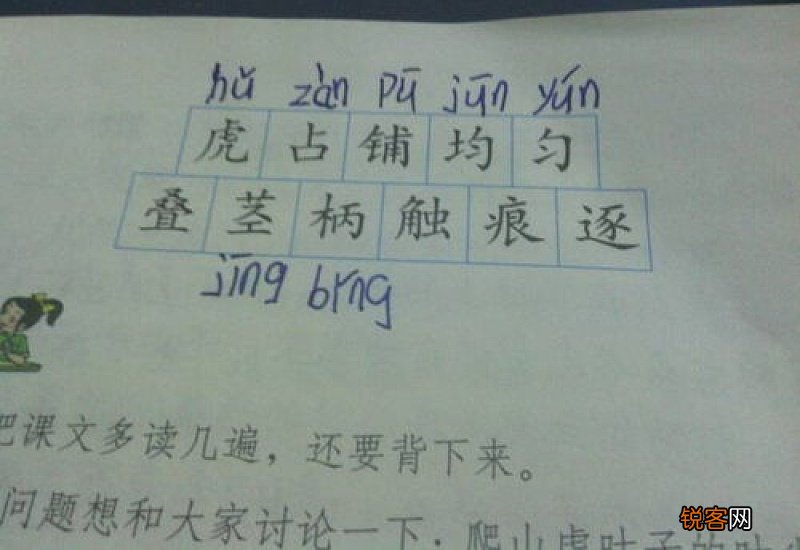 hǔ zàn pū jūn yún
虎占铺均匀
叠茎柄触痕逐
jīng bǐng
把课文多读几遍，还要背下来。
问题想和大家讨论一下：爬山虎叶子的叶尖
锐客网